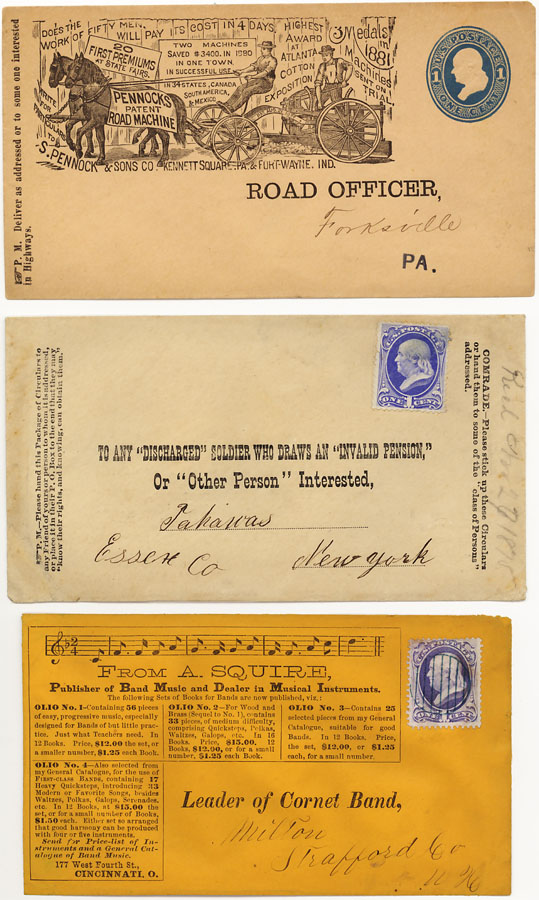 DOES THE WORK OF FIFTY MEN. WILL PAY ITS COST IN 4 DAYS.
20
FIRST PREMIUMS
AT STATE FAIRS.
TWO MACHINES
SAVED $3400. IN 1880
IN ONE TOWN,
IN SUCCESSFUL USE
IN 34 STATES, CANADA
SOUTH AMERICA,
& MEXICO
HIGHEST
AWARD
AT
ATLANTA
COTTON
EXPOSITION
3 Medals
in
1881
Machines
SENT ON
TRIAL
PENNOCK'S
PATENT
ROAD MACHINE
WRITE
FOR
TO
S. PENNOCK & SONS CO. KENNETT SQUARE PA. & FORT WAYNE. IND.
U.S. POSTAGE
1 1
ONE CENT
P. M. Deliver as addressed or to some one interested
in Highways.
ROAD OFFICER,
Forksville
PA.
P. M.—Please hand this Package of Circulars to
any Friend of yours or person to whom it is addressed,
or place it in their P. O. Box to the end that they may,
"know their rights, and knowing, can obtain them."
U.S. POSTAGE
ONE 1 CENT
COMRADE.—Please stick up these Circulars
or hand them to some of the "class of Persons"
addressed.
TO ANY "DISCHARGED" SOLDIER WHO DRAWS AN "INVALID PENSION,"
Or "Other Person" Interested,
Tahawas
Essex Co New York
2/4
FROM A. SQUIRE,
Publisher of Band Music and Dealer in Musical Instruments.
The following Sets of Books for Bands are now published, viz.:
OLIO No. 1—Containing 56 pieces
of easy, progressive music, especially
designed for Bands of but little prac-
tice. Just what Teachers need. In
12 Books. Price, $12.00 the set, or
a smaller number, $1.25 each Book.
OLIO No. 2—For Wood and
Brass (Sequel to No. 1), contains
33 pieces, of medium difficulty,
comprising Quicksteps, Polkas,
Waltzes, Galops, etc. In 16
Books. Price, $15.00. 12
Books, $12.00, or for a small
number, $1.25 each Book.
OLIO No. 3—Contains 25
selected pieces from my General
Catalogue, suitable for good
Bands. In 12 Books. Price,
the set, $12.00, or $1.25
each, for a small number.
OLIO No. 4—Also selected from
my General Catalogue, for the use of
FIRST-CLASS BANDS, containing 17
Heavy Quicksteps, introducing 33
Modern or Favorite Songs, besides
Waltzes, Polkas, Galops, Serenades,
etc. In 12 Books, at $15.00 the
set, or for a small number of Books,
$1.50 each. Either set so arranged
that good harmony can be produced
with four or five instruments.
Send for Price-list of In-
struments and a General Cat-
alogue of Band Music.
177 West Fourth St.,
CINCINNATI, O.
Leader of Cornet Band,
Milton
Strafford Co
N H